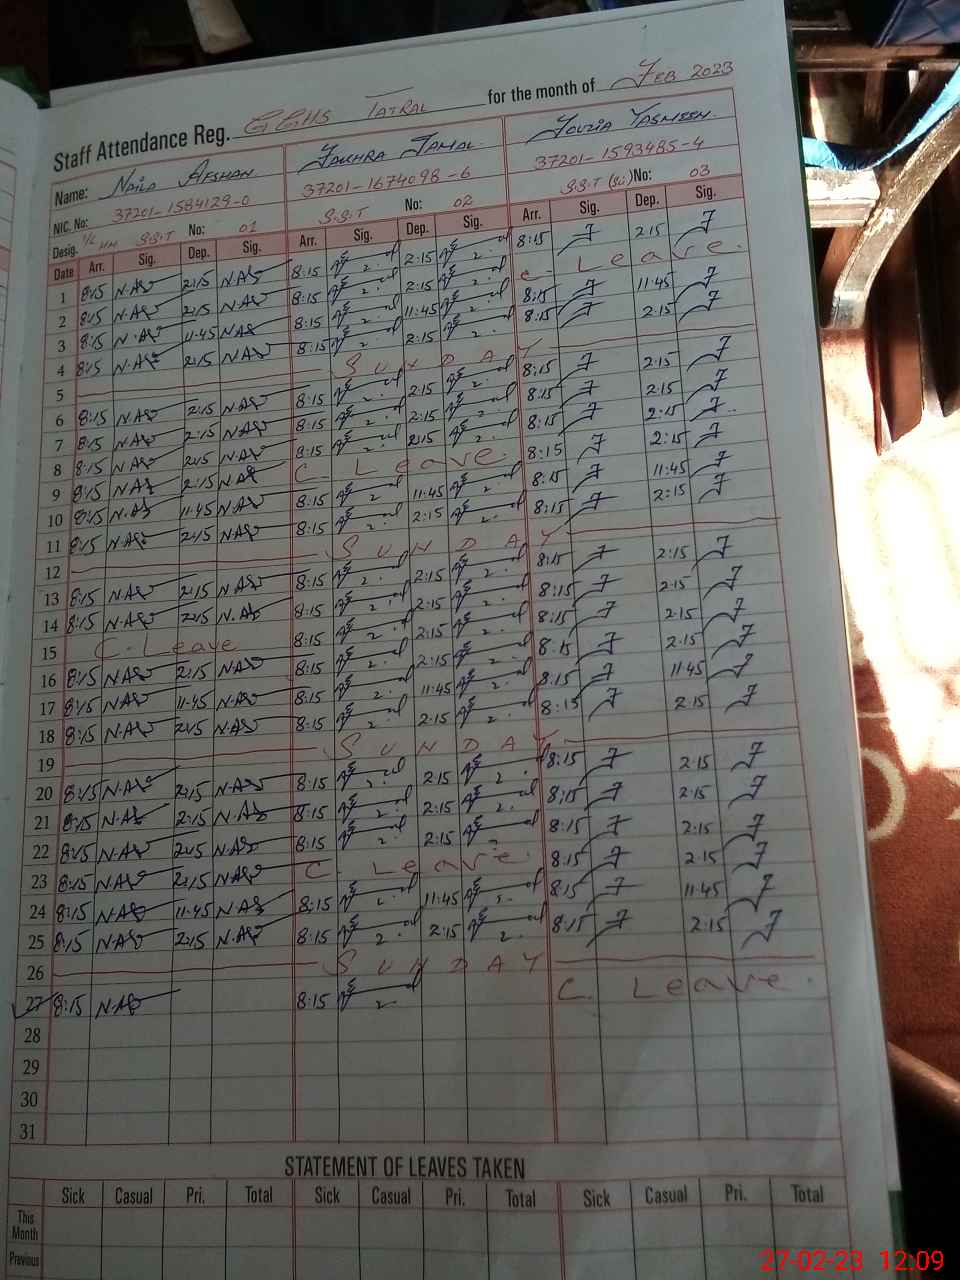 Staff Attendance Reg. GGHS TATRAL for the month of FEB 2023
Name: NAILA AFSHAN FAKHRA JAMAL FOUZIA YASMEEN
NIC. No: 37201-1584129-0 37201-1674098-6 37201-1593485-4
Desig. I/C HM S.S.T No: 01 S.S.T No: 02 S.S.T (Sci) No: 03
Date Arr. Sig. Dep. Sig. Arr. Sig. Dep. Sig. Arr. Sig. Dep. Sig.
1 8:15 2:15 8:15 2:15 8:15 2:15
2 8:15 2:15 8:15 2:15 C. Leave.
3 8:15 11:45 8:15 11:45 8:15 11:45
4 8:15 2:15 8:15 2:15 8:15 2:15
5 SUNDAY
6 8:15 2:15 8:15 2:15 8:15 2:15
7 8:15 2:15 8:15 2:15 8:15 2:15
8 8:15 2:15 8:15 2:15 8:15 2:15
9 8:15 2:15 C. Leave. 8:15 2:15
10 8:15 11:45 8:15 11:45 8:15 11:45
11 8:15 2:15 8:15 2:15 8:15 2:15
12 SUNDAY
13 8:15 2:15 8:15 2:15 8:15 2:15
14 8:15 2:15 8:15 2:15 8:15 2:15
15 C. Leave 8:15 2:15 8:15 2:15
16 8:15 2:15 8:15 2:15 8:15 2:15
17 8:15 11:45 8:15 11:45 8:15 11:45
18 8:15 2:15 8:15 2:15 8:15 2:15
19 SUNDAY
20 8:15 2:15 8:15 2:15 8:15 2:15
21 8:15 2:15 8:15 2:15 8:15 2:15
22 8:15 2:15 8:15 2:15 8:15 2:15
23 8:15 2:15 C. Leave. 8:15 2:15
24 8:15 11:45 8:15 11:45 8:15 11:45
25 8:15 2:15 8:15 2:15 8:15 2:15
26 SUNDAY
27 8:15 8:15 C. Leave.
28
29
30
31
STATEMENT OF LEAVES TAKEN
Sick Casual Pri. Total Sick Casual Pri. Total Sick Casual Pri. Total
This Month
Previous
27-02-23 12:09